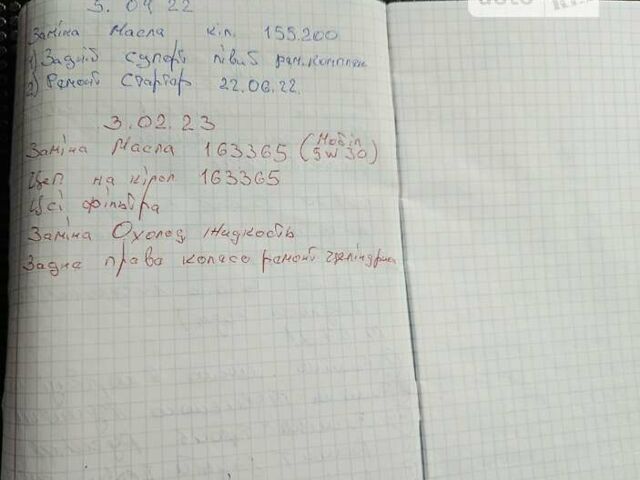 5.04.22
Заміна Масла к.п. 155.200
1) Задній супорт лівий рем.комплек
2) Ремонт Стартер 22.06.22.
3.02.23
Заміна Масла 163365 (Мобіл 5w30)
на 163365
Всі фільтра
Заміна Охолод жидкость
Задна права колесо ремонт
auto